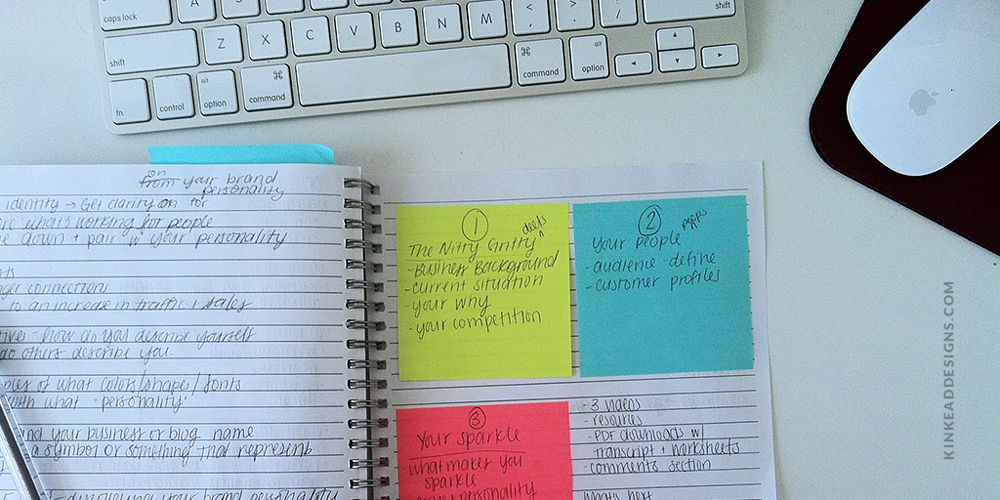 caps lock
A
shift
Z
X
C
V
B
N
M
<
,
>
.
?
/
shift
fn
control
alt
option
⌘
command
⌘
command
alt
option
◄
▲
▼
►
on
from your brand
personality
identity → Get clarity on for
what's working for people
down + pair w your personality
connection
to an increase in traffic + sales
how do you describe yourself
do others describe you.
of what colors/shape/fonts
with what "personality"
your business or blog name
a symbol or something that represent
your brand personality
1
The Nitty Gritty deets
- Business Background
- current situation
- your why
- your competition
2
your people peeps
- audience define
- customer profiles
3
Your sparkle
- what makes you
sparkle
personality
- 3 videos
- resources
- PDF downloads w/
transcript + worksheets
- comments section
What's next
KINKEADDESIGNS.COM